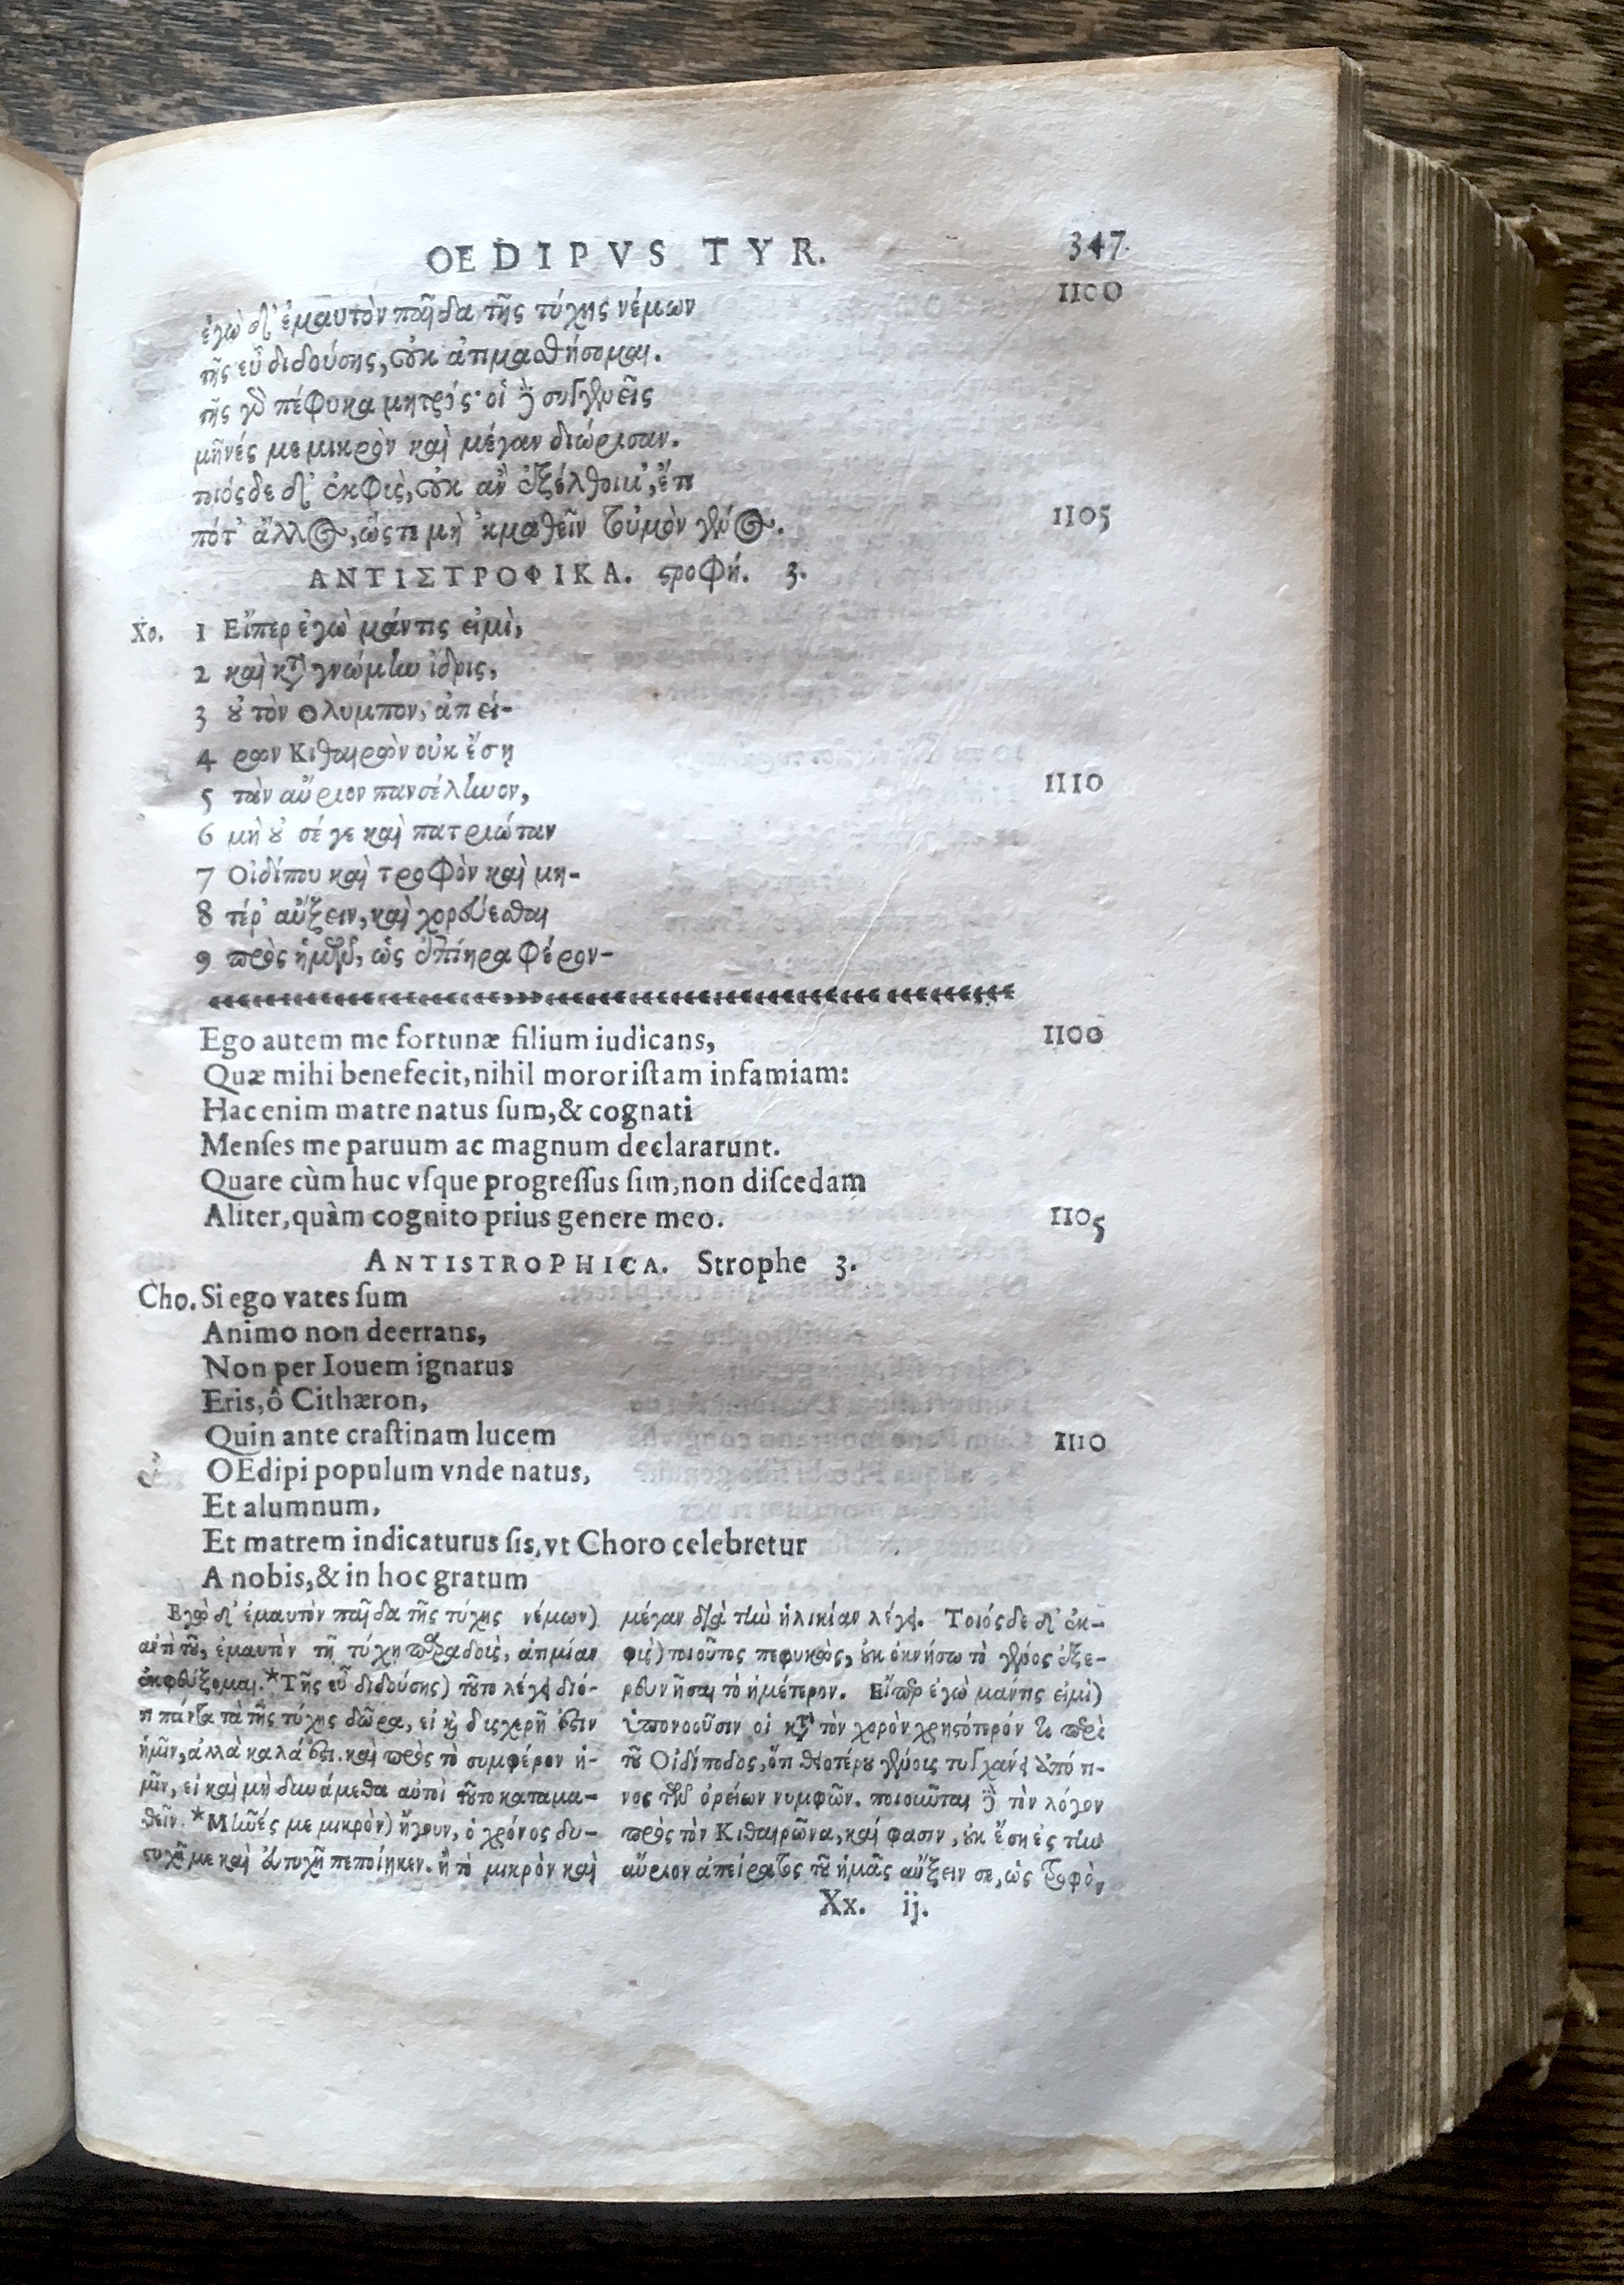 OEDIPVS TYR. 347
ἐγὼ δ' ἐμαυτὸν παῖδα τῆς τύχης νέμων 1100
τῆς εὖ διδούσης, οὐκ ἀτιμασθήσομαι.
τῆς γὰρ πέφυκα μητρός· οἱ δὲ συγγενεῖς
μῆνές με μικρὸν καὶ μέγαν διώρισαν.
τοιόςδε δ' ἐκφὺς, οὐκ ἂν ἐξέλθοιμ', ἔτι
πότ' ἄλλος, ὥςτε μὴ 'κμαθεῖν τοὐμὸν γένος. 1105
ΑΝΤΙΣΤΡΟΦΙΚΑ. στροφή. 3.
Χο. 1 Εἴπερ ἐγὼ μάντις εἰμὶ,
2 καὶ κατὰ γνώμην ἴδρις,
3 οὐ τὸν Ολυμπον, ἀπεί-
4 ρων Κιθαιρὼν οὐκ ἔσῃ
5 τὰν αὔριον πανσέληνον, 1110
6 μὴ οὐ σέ γε καὶ πατριώταν
7 Οἰδίπου καὶ τροφὸν καὶ μη-
8 τέρ' αὔξειν, καὶ χορεύεσθαι
9 πρὸς ἡμῶν, ὡς ἐπίηρα φέρον-
Ego autem me fortunæ filium iudicans, 1100
Quæ mihi benefecit, nihil moror istam infamiam:
Hac enim matre natus ſum, & cognati
Menſes me paruum ac magnum declararunt.
Quare cùm huc vſque progreſſus ſim, non diſcedam
Aliter, quàm cognito prius genere meo. 1105
ANTISTROPHICA. Strophe 3.
Cho. Si ego vates ſum
Animo non deerrans,
Non per Iouem ignarus
Eris, ô Cithæron,
Quin ante craſtinam lucem 1110
OEdipi populum vnde natus,
Et alumnum,
Et matrem indicaturus ſis, vt Choro celebretur
A nobis, & in hoc gratum
Εγὼ δ' ἐμαυτὸν παῖδα τῆς τύχης νέμων)
αὐτὸ τοῦ, ἐμαυτὸν τῇ τύχῃ παραδοὺς, ἀτιμίαν
ἐκφεύξομαι. * Τῆς εὖ διδούσης) τοῦτο λέγει διό-
τι πάντα τὰ τῆς τύχης δῶρα, εἰ καὶ δυσχερῆ ἐστιν
ἡμῖν, ἀλλὰ καλά ἐστι. καὶ πρὸς τὸ συμφέρον ἡ-
μῖν, εἰ καὶ μὴ δυνάμεθα αὐτοὶ τοῦτο καταμα-
θεῖν. * Μῆνές με μικρὸν) ἤγουν, ὁ χρόνος δυ-
στυχῆ με καὶ εὐτυχῆ πεποίηκεν. ἢ τὸ μικρὸν καὶ
μέγαν διὰ τὴν ἡλικίαν λέγει. Τοιόςδε δ' ἐκ-
φὺς) τοιοῦτος πεφυκὼς, οὐκ ὀκνήσω τὸ γένος ἐξε-
ρευνῆσαι τὸ ἡμέτερον. Εἴπερ ἐγὼ μάντις εἰμὶ)
ὑπονοοῦσιν οἱ κατὰ τὸν χορὸν χρηστότερόν τι περὶ
τοῦ Οἰδίποδος, ὅτι θειοτέρου γένους τυγχάνει ὑπό τι-
νος τῶν ὀρείων νυμφῶν. ποιοῦνται δὲ τὸν λόγον
πρὸς τὸν Κιθαιρῶνα, καί φασιν, οὐκ ἔσῃ ἐς τὴν
αὔριον ἀπείρατος τοῦ ἡμᾶς αὔξειν σε, ὡς τροφὸν
Xx. ij.